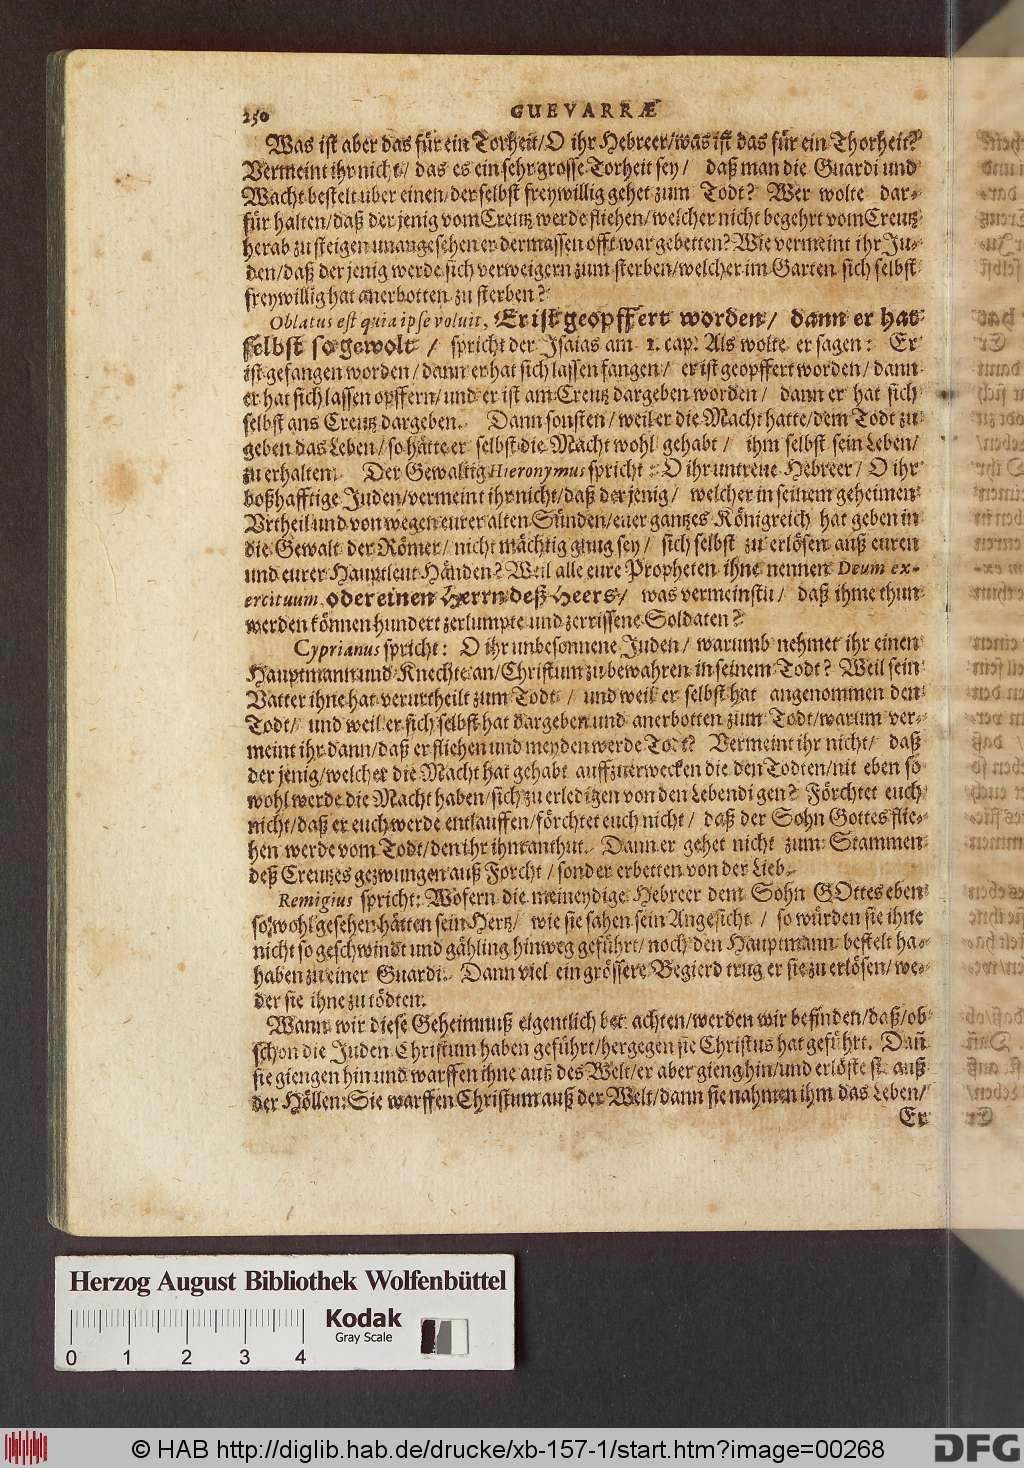 250 GUEVARRÆ
Was ist aber das für ein Torheit/O ihr Hebreer/was ist das für ein Thorheit?
Vermeint ihr nicht/ das es ein sehr grosse Torheit sey/ daß man die Guardi und
Wacht bestelt uber einen/der selbst freywillig gehet zum Todt? Wer wolte dar-
für halten/daß der jenig vom Creutz werde fliehen/welcher nicht begehrt vom Creutz
herab zu steigen unangesehen er dermassen offt war gebetten? Wie vermeint ihr Ju-
den/daß der jenig werde sich verweigern zum sterben/welcher im Garten sich selbst
freywillig hat anerbotten zu sterben?
Oblatus est quia ipse voluit, Er ist geopffert worden/ dann er hat
selbst so gewolt / spricht der Isaias am 1. cap. Als wolte er sagen: Er
ist gefangen worden/dann er hat sich lassen fangen/ er ist geopffert worden/dann
er hat sich lassen opffern/und er ist am Creutz dargeben worden/ dann er hat sich
selbst ans Creutz dargeben. Dann sonsten/weil er die Macht hatte/dem Todt zu
geben das Leben/so hätte er selbst die Macht wohl gehabt/ ihm selbst sein Leben/
zu erhalten. Der Gewaltig Hieronymus spricht: O ihr untreue Hebreer/O ihr
boßhafftige Juden/vermeint ihr nicht/daß der jenig/ welcher in seinem geheimen
Vrtheil und von wegen eurer alten Sünden/euer gantzes Königreich hat geben in
die Gewalt der Römer/nicht mächtig gnug sey/ sich selbst zu erlösen auß euren
und eurer Hauptleut Händen? Weil alle eure Propheten ihne nennen Deum ex-
ercituum, oder einen Herrn deß Heers/ was vermeinstu/ daß ihme thun
werden können hundert zerlumpte und zerrissene Soldaten?
Cyprianus spricht: O ihr unbesonnene Juden/warumb nehmet ihr einen
Hauptmann und Knechte an/Christum zu bewahren in seinem Todt? Weil sein
Vatter ihne hat verurtheilt zum Todt/ und weil er selbst hat angenommen den
Todt/ und weil er sich selbst hat dargeben und anerbotten zum Todt/warum ver-
meint ihr dann/daß er fliehen und meyden werde Todt? Vermeint ihr nicht/ daß
der jenig/welcher die Macht hat gehabt auffzuerwecken die den Todten/nit eben so
wohl werde die Macht haben/sich zu erledigen von den Lebendigen? Förchtet euch
nicht/daß er euch werde entlauffen/förchtet euch nicht/ daß der Sohn Gottes flie-
hen werde vom Todt/den ihr ihn anthut. Dann er gehet nicht zum Stammen
deß Creutzes gezwungen auß Forcht/sonder erbetten von der Lieb.
Remigius spricht: Wofern die meineydige Hebreer dem Sohn GOttes eben
so wohl gesehen hätten sein Hertz/ wie sie sahen sein Angesicht/ so würden sie ihne
nicht so geschwindt und gähling hinweg geführt/noch den Hauptmann bestelt ha-
haben zu einer Guardi. Dann viel ein grössere Begierd trug er sie zu erlösen/we-
der sie ihne zu tödten.
Wann wir diese Geheimnuß eigentlich betrachten/werden wir befinden/daß/ob
schon die Juden Christum haben geführt/hergegen sie Christus hat geführt. Dañ
sie giengen hin und warffen ihne auß des Welt/er aber gieng hin/und erlöste sie auß
der Höllen: Sie warffen Christum auß der Welt/dann sie nahmen ihm das Leben/
Er
Herzog August Bibliothek Wolfenbüttel
Kodak
Gray Scale
0 1 2 3 4
© HAB http://diglib.hab.de/drucke/xb-157-1/start.htm?image=00268
DFG